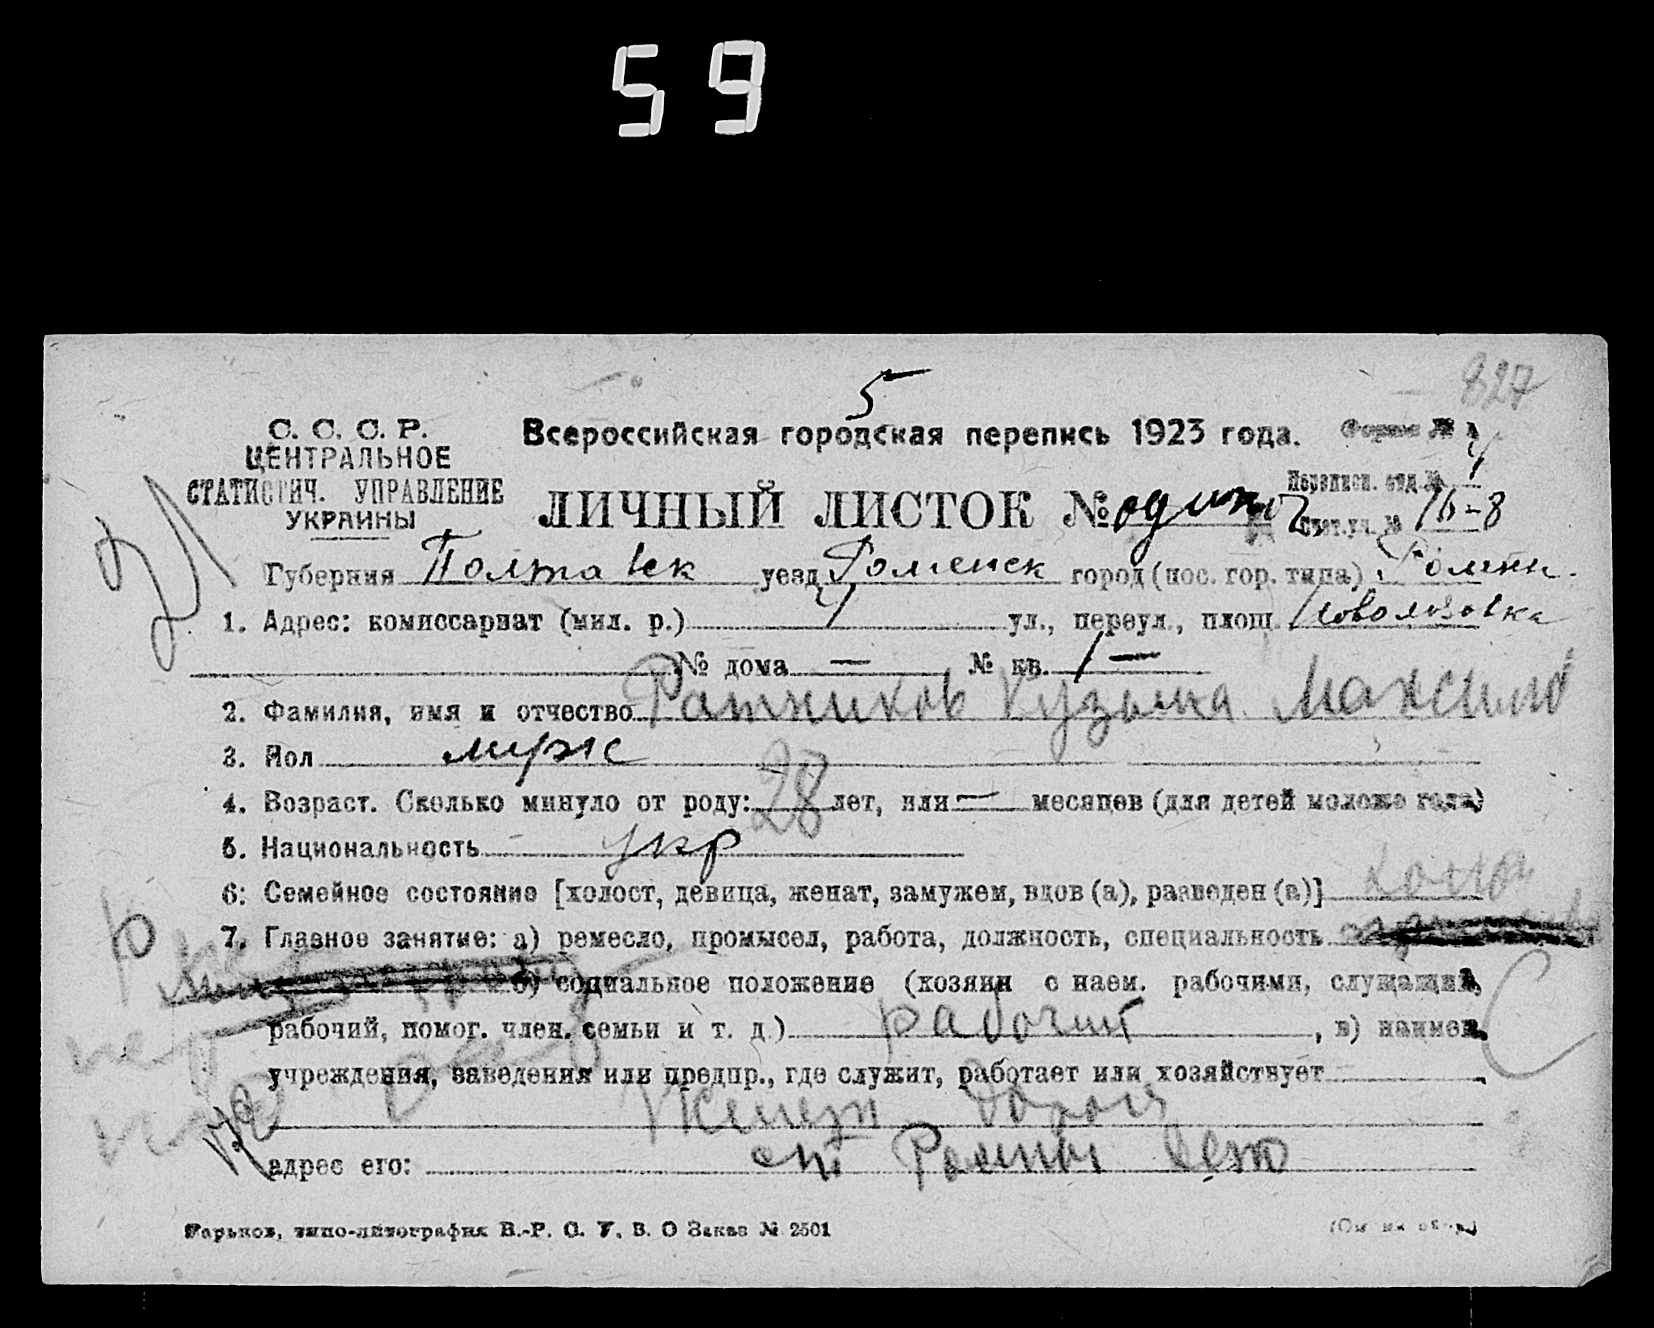 59
827
5
С. С. С. Р.
ЦЕНТРАЛЬНОЕ
СТАТИСТИЧ. УПРАВЛЕНИЕ
УКРАИНЫ
Всероссийская городская перепись 1923 года.
Форма №
Переписн. отд. №
ЛИЧНЫЙ ЛИСТОК №
Счет. уч. № 16-8
Губерния Полтавск уезд Роменск город (пос. гор. типа) Ромны
1. Адрес: комиссариат (мил. р.) ул., переул., площ.
№ дома — № кв. 1 —
2. Фамилия, имя и отчество Ратников Кузьма Максимо
3. Пол муж
4. Возраст. Сколько минуло от роду: 28 лет, или — месяцев (для детей моложе года)
5. Национальность укр
6. Семейное состояние [холост, девица, женат, замужем, вдов (а), разведен (а)] холо
7. Главное занятие: а) ремесло, промысел, работа, должность, специальность
б) социальное положение (хозяин с наем. рабочими, служащий,
рабочий, помог. член. семьи и т. д.) рабочий, в) наимен.
учреждения, заведения или предпр., где служит, работает или хозяйствует
адрес его: ст Ромны
Харьков, типо-литография В.-Р. С. У. В. О Заказ № 2501